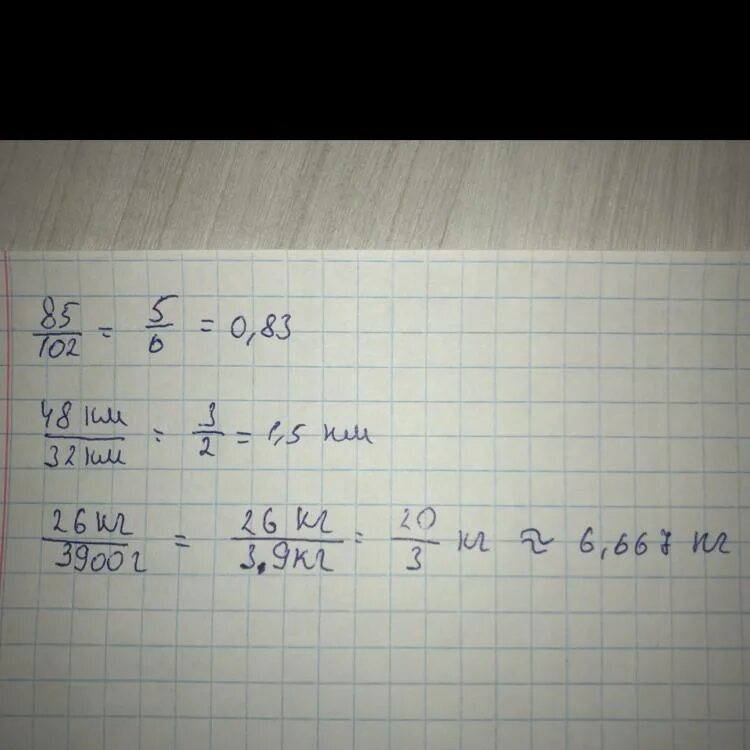 85/102 = 5/6 = 0,83
48 км/32 км = 3/2 = 1,5 км
26 кг/3900 г = 26 кг/3,9 кг = 20/3 кг ≈ 6,667 кг